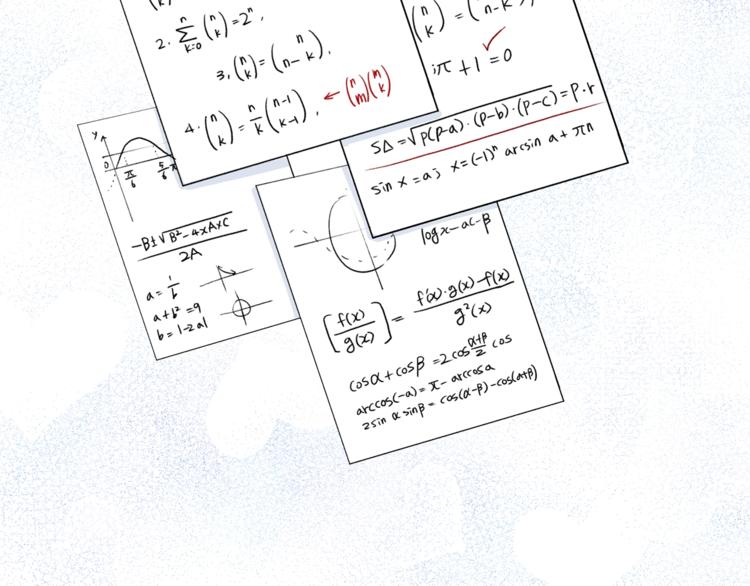 2. ∑ⁿₖ₌₀ (n k) = 2ⁿ,
3, (n k) = (n n-k).
4. (n k) = n/k (n-1 k-1), ← (n m)(m k)
(n k) = (n n-k),
iπ + 1 = 0
S△ = √p(p-a)·(p-b)·(p-c) = p·r
sin x = a; x = (-1)ⁿ arcsin a + πn
y
0 π/6 5/6 π
-B±√B²-4xAxC / 2A
a = 1/b
a + b² = 9
b = 1-2a|
logx-ac-β
[f(x)/g(x)] = f'(x)·g(x)-f(x) / g²(x)
cosα + cosβ = 2cos α+β/2 cos
arccos(-a) = π - arccosa
2sin α sinβ = cos(α-β)-cos(α+β)